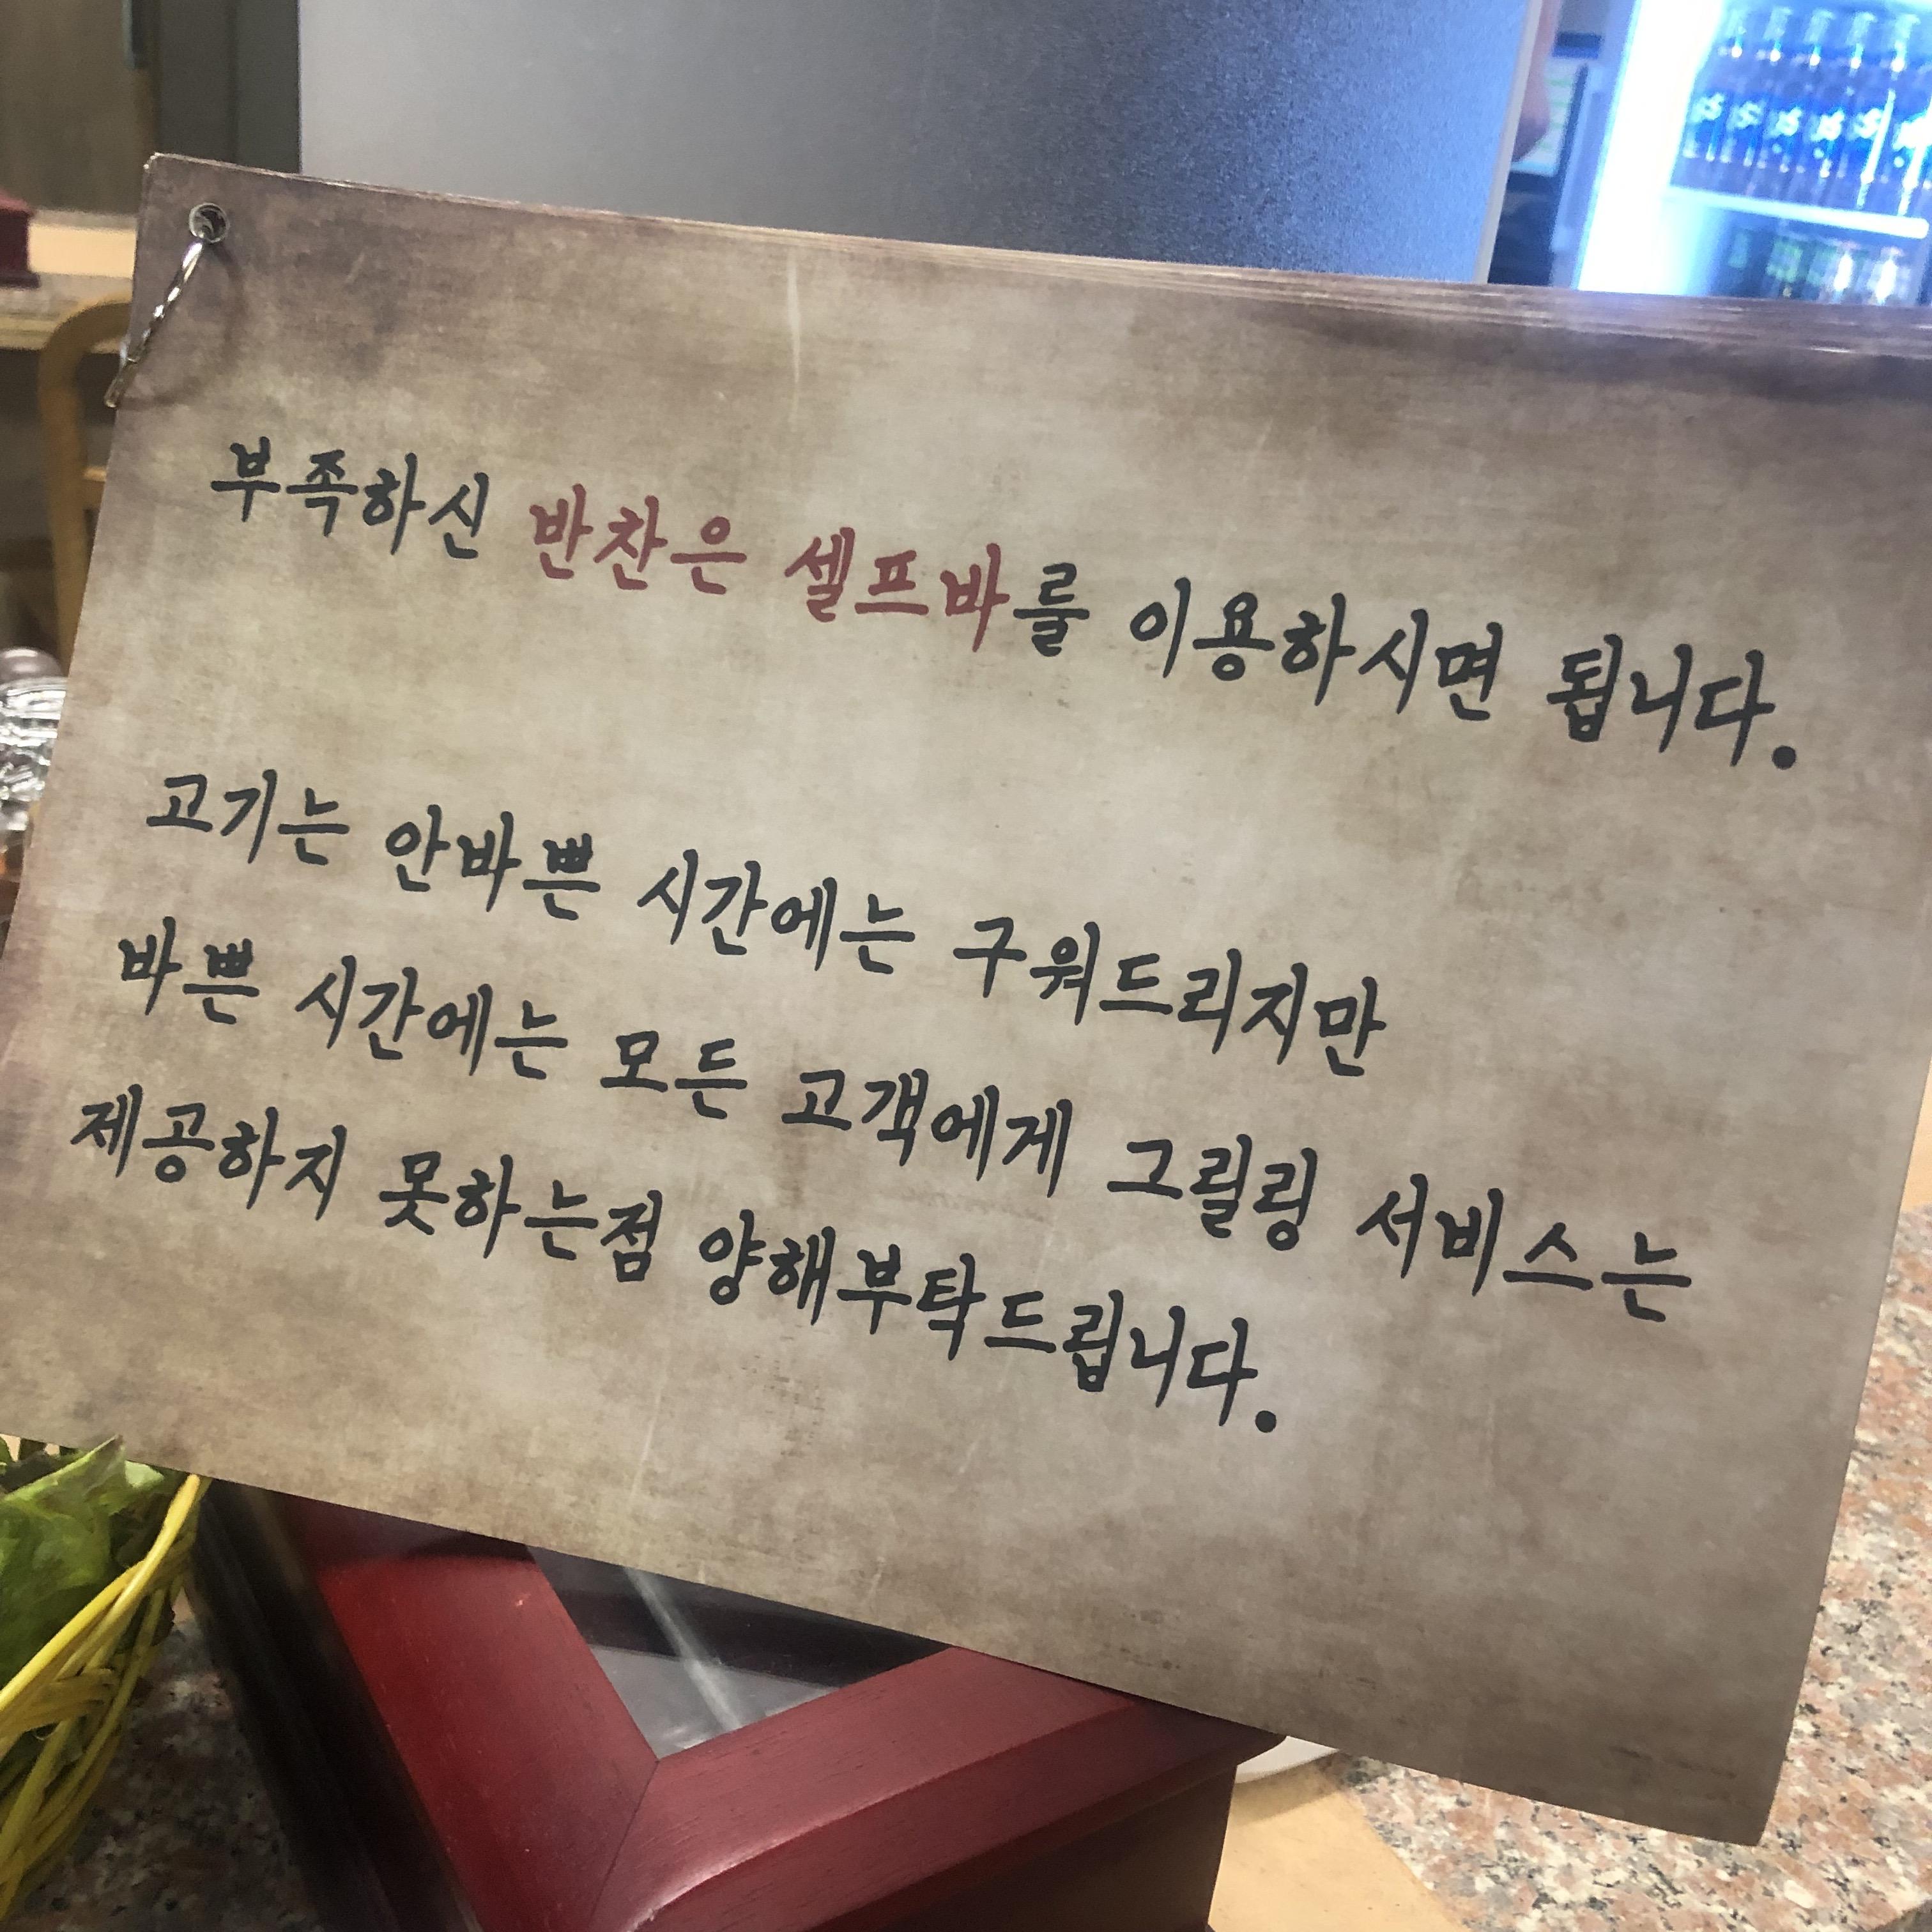 부족하신 반찬은 셀프바를 이용하시면 됩니다.
고기는 안바쁜 시간에는 구워드리지만
바쁜 시간에는 모든 고객에게 그릴링 서비스는
제공하지 못하는점 양해부탁드립니다.